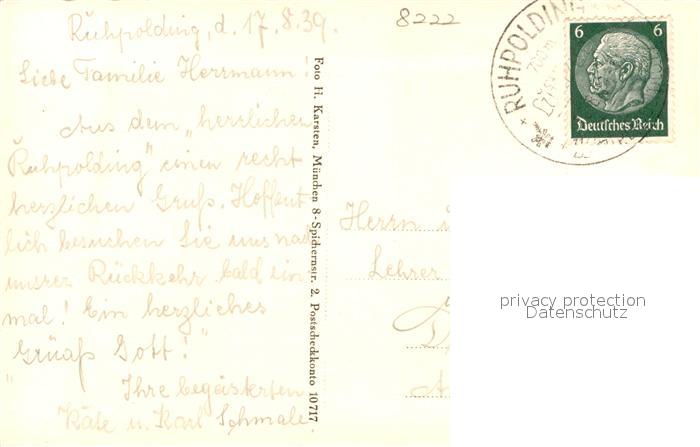 Ruhpolding, d. 17.8.39.
8222
Liebe Familie Herrmann!
Aus dem "herrlichen
Ruhpolding" einen recht
herzlichen Gruß. Hoffent
lich besuchen Sie uns nach
unsrer Rückkehr bald ein
mal! Ein herzliches
"Grüaß Gott!"
Ihre begeisterten
Käte u. Karl Schmale.
Foto H. Karsten, München 8 - Spichernstr. 2. Postscheckkonto 10717
RUHPOLDING
700 m
6 6
Deutsches Reich
Herrn
Lehrer
privacy protection
Datenschutz